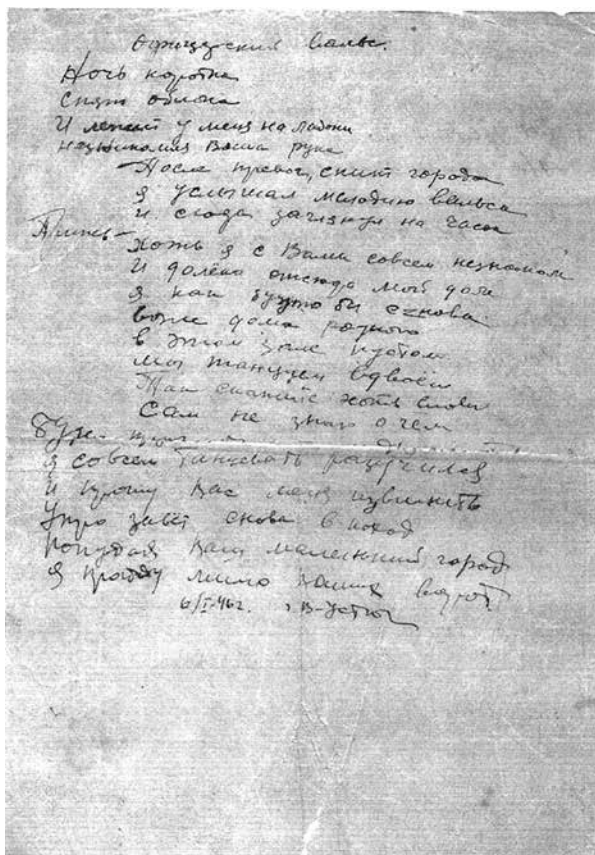 Офицерский вальс.
Ночь коротка
Спят облака
И лежит у меня на ладони
незнакомая Ваша рука
После тревог, спит городок
я услышал мелодию вальса
и сюда заглянул на часок
Припев –
Хоть я с Вами совсем незнаком
И далёко отсюда мой дом
я как будто бы снова
возле дома родного
в этом зале пустом
мы танцуем вдвоём
Так скажите хоть слово
Сам не знаю о чем
Будем
я совсем танцевать разучился
и прошу Вас меня извинить
Утро зовёт снова в поход
Покидая Ваш маленький город
я пройду мимо Ваших ворот
6/I-46г. В-Устюг